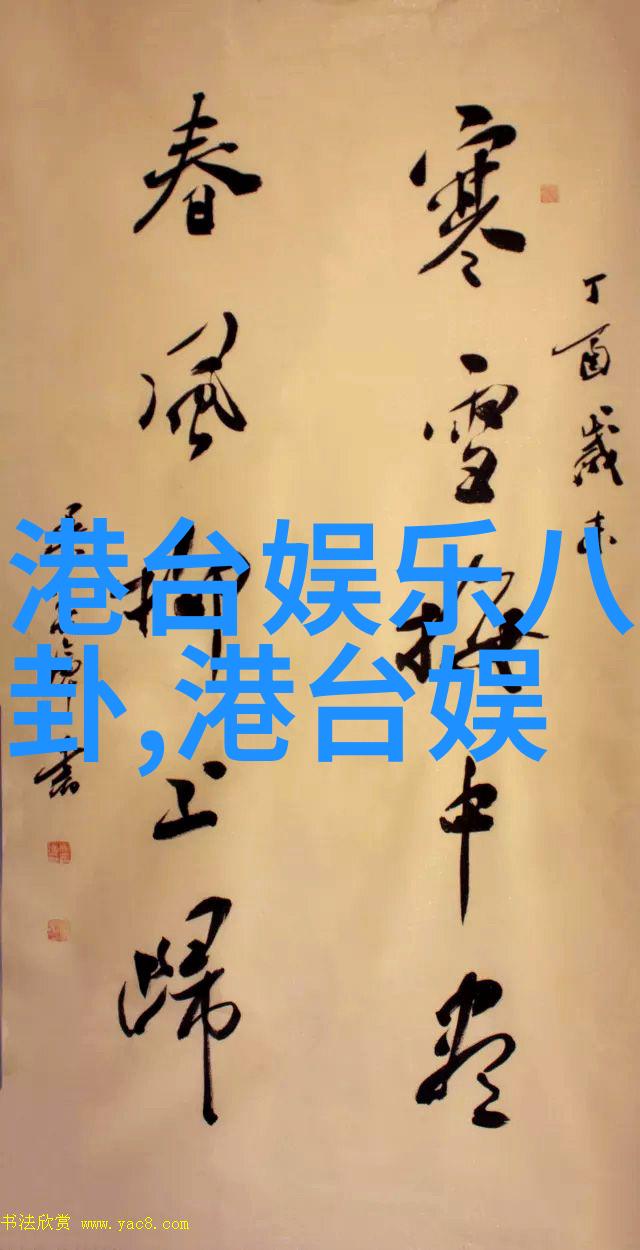 丁酉歲末
寒雪梅中盡
春風柳上歸
港台娱乐八
卦,港台娱
书法欣赏 www.yac8.com